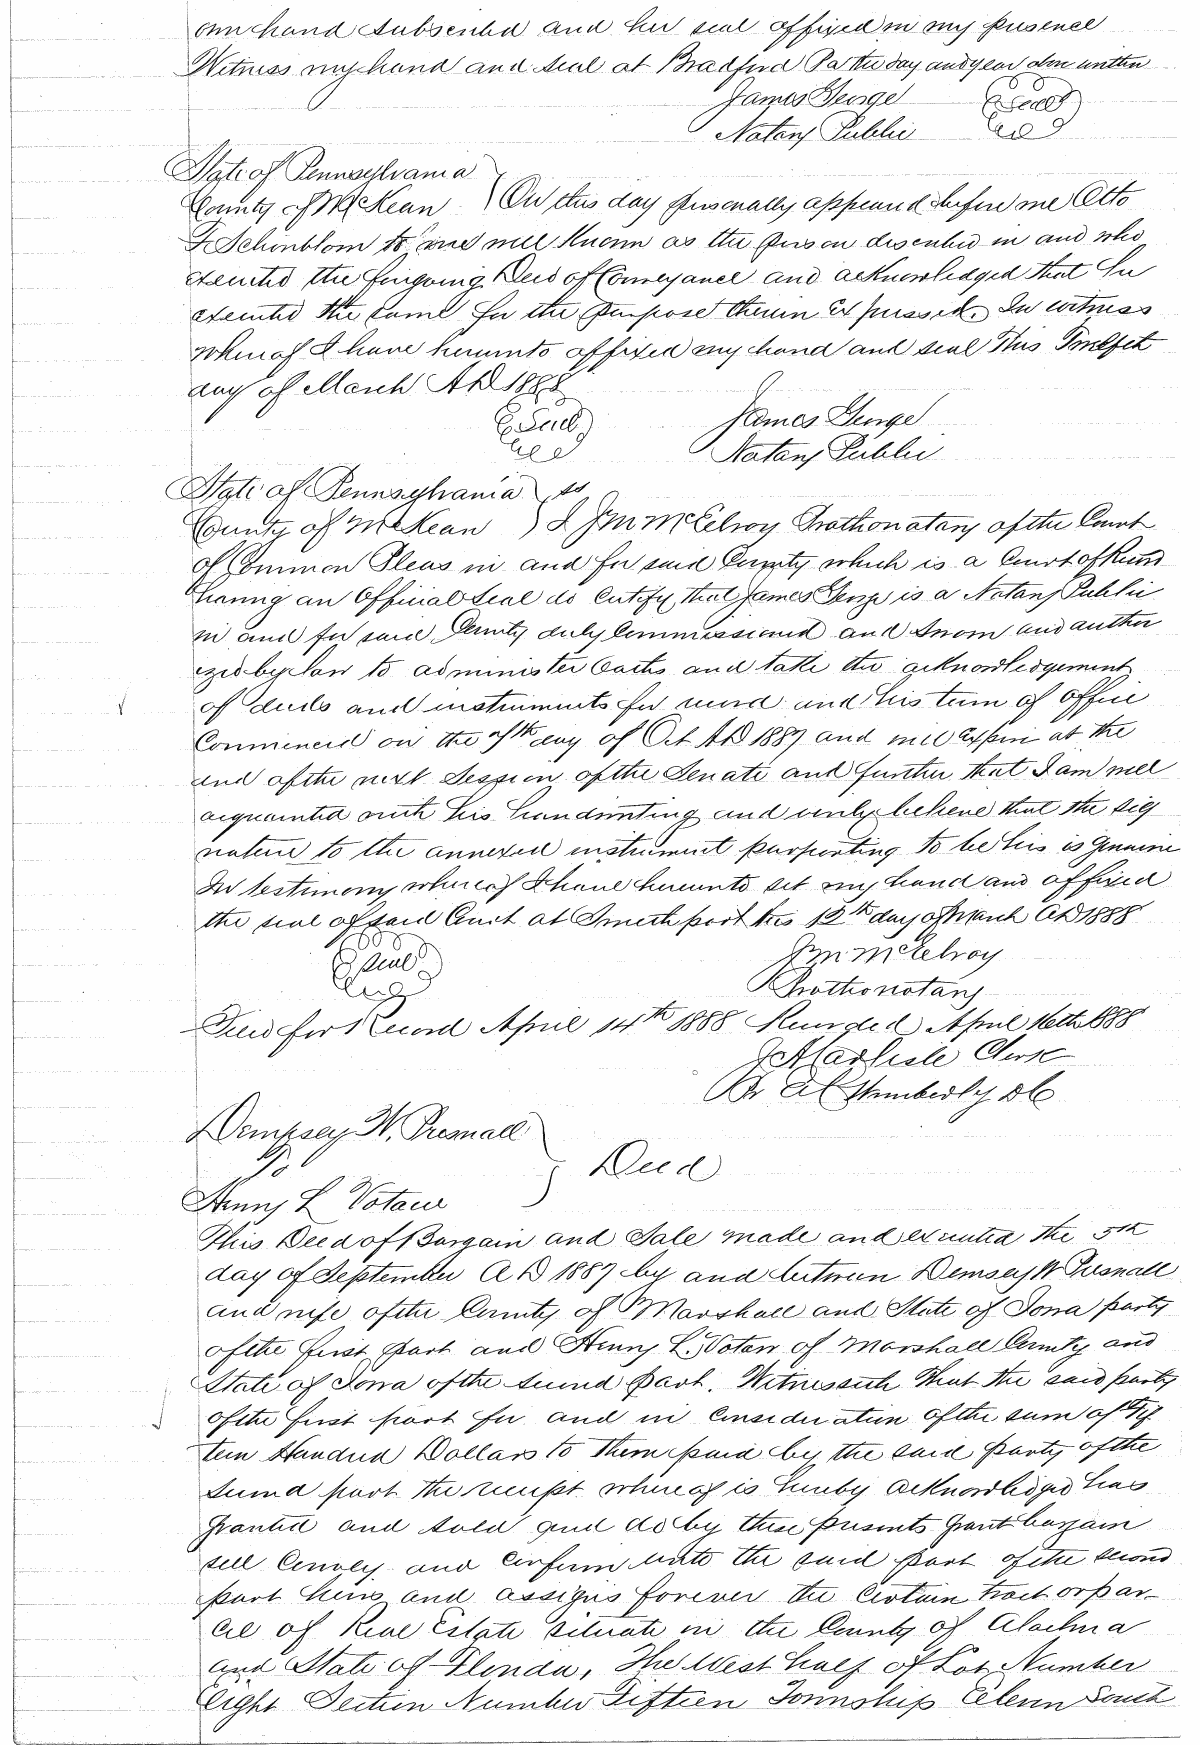 own hand subscribed and her seal affixed in my presence
Witness my hand and seal at Bradford Pa the day and year above written
James George
Notary Public
Seal
State of Pennsylvania
County of McKean } On this day personally appeared before me Otto
F Schonblom to me well known as the person described in and who
executed the foregoing Deed of Conveyance and acknowledged that he
executed the same for the purpose therein expressed. In witness
whereof I have hereunto affixed my hand and seal This Twelfth
day of March AD 1888
James George
Seal
Notary Public
State of Pennsylvania } ss
County of McKean } I Jm McElroy Prothonotary of the Court
of Common Pleas in and for said County which is a Court of Record
having an Official Seal do certify that James George is a Notary Public
in and for said County duly Commissioned and sworn and author
ized by law to administer Oaths and take the acknowledgement
of deeds and instruments for record and his term of office
Commenced on the 7th day of Oct AD 1887 and will expire at the
end of the next Session of the Senate and further that I am well
acquainted with his handwriting and verily believe that the sig
nature to the annexed instrument purporting to be his is genuine
In testimony whereof I have hereunto set my hand and affixed
the seal of said Court at Smethport this 12th day of March AD 1888
Jm McElroy
Seal
Prothonotary
Filed for Record April 14th 1888 Recorded April 16th 1888
J A Carlisle Clerk
Pr A C Wimberly DC
Dempsey W. Presnall
To } Deed
Henry L Votaw
This Deed of Bargain and Sale made and executed the 5th
day of September AD 1887 by and between Demsey W Presnall
and wife of the County of Marshall and State of Iowa party
of the first part and Henry L. Votaw of Marshall County and
State of Iowa of the second part. Witnesseth That the said party
of the first part for and in Consideration of the sum of Fif
teen Hundred Dollars to them paid by the said party of the
second part the receipt whereof is hereby acknowledged has
granted and sold and do by these presents grant bargain
sell Convey and confirm unto the said part of the second
part heirs and assigns forever the Certain tract or par-
cel of Real Estate situate in the County of Alachua
and State of Florida, The West half of Lot Number
Eight Section Number Fifteen Township Eleven South